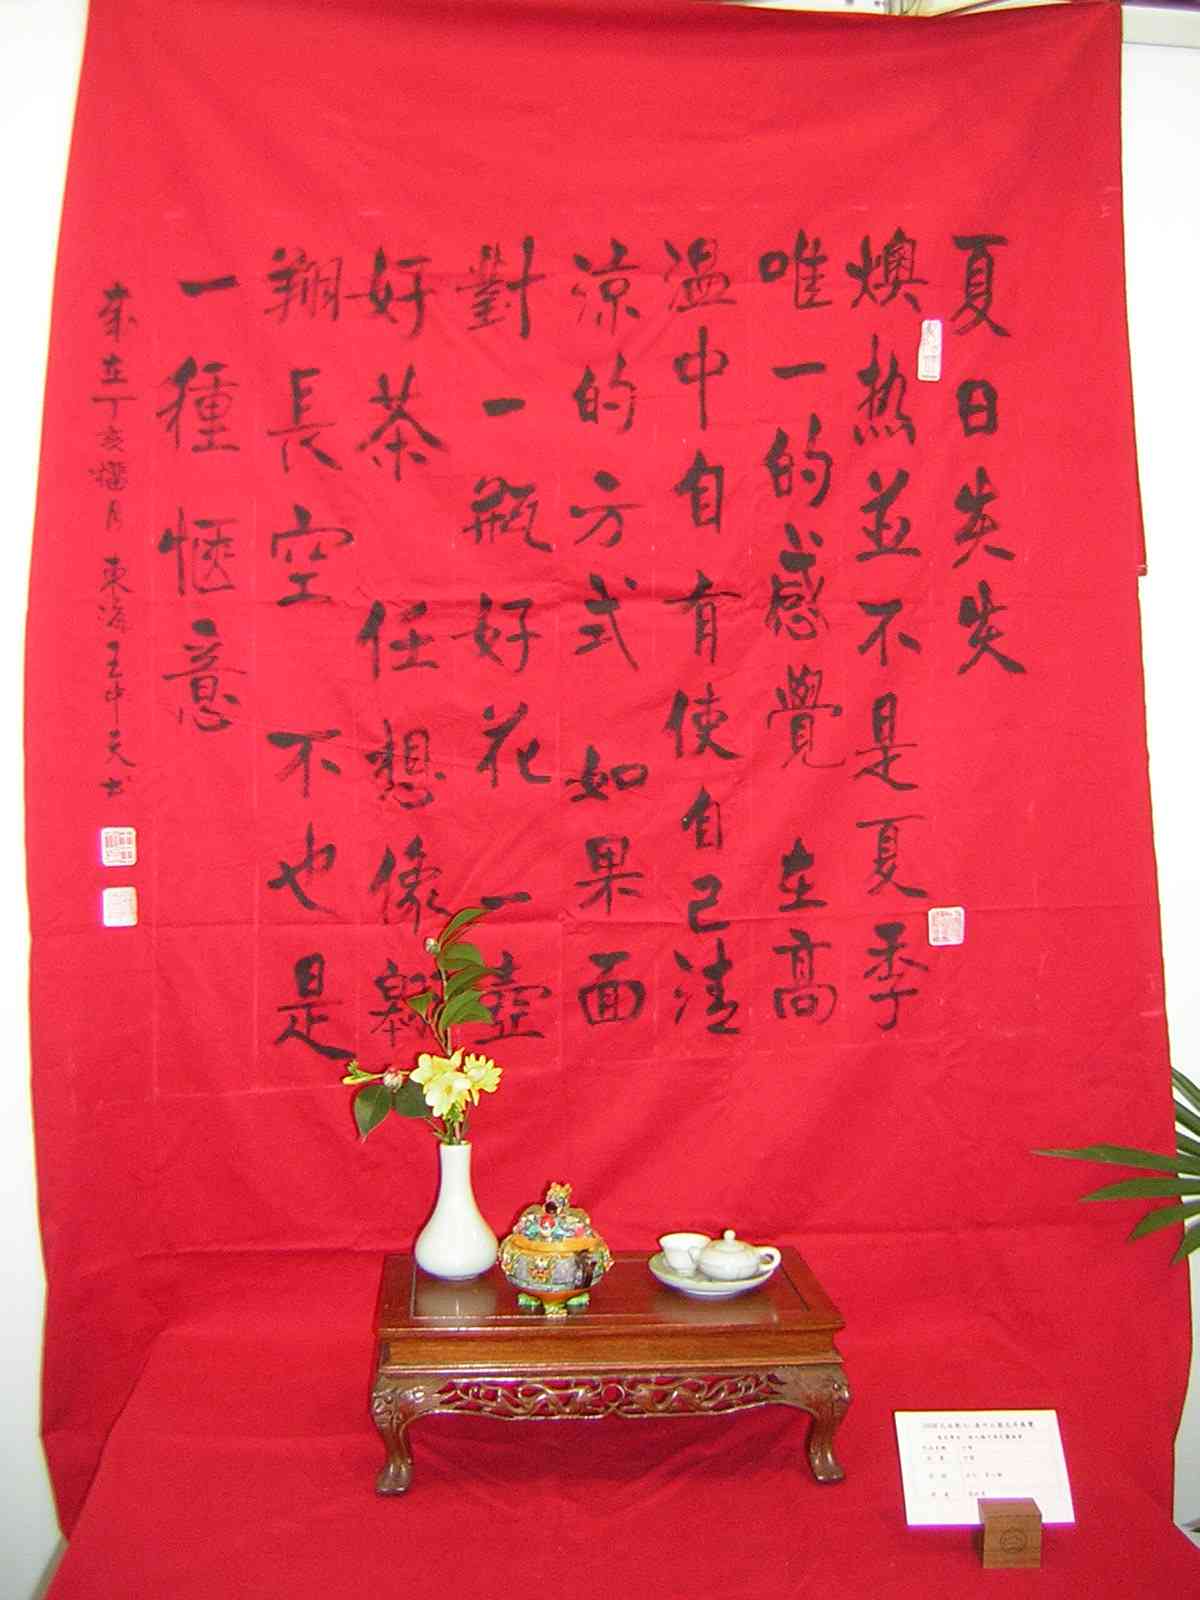 夏日炎炎
燠热並不是夏季
唯一的感覺 在高
温中自有使自己清
涼的方式 如果面
對一瓶好花 一壺
好茶 任想像翱
翔長空 不也是
一種愜意
歲在丁亥 月 東海王中天书